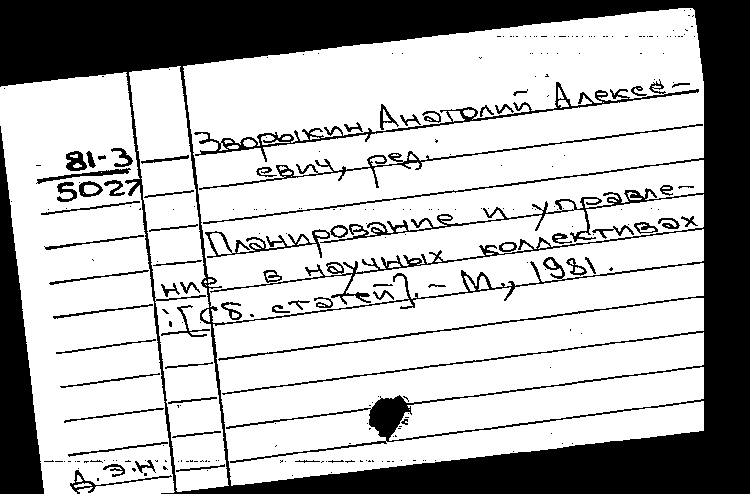 81-3
5027
Зворыкин, Анатолий Алексе-
евич, ред.
Планирование и управле-
ние в научных коллективах
: [Сб. статей]. - М., 1981.
Д.Э.Н.